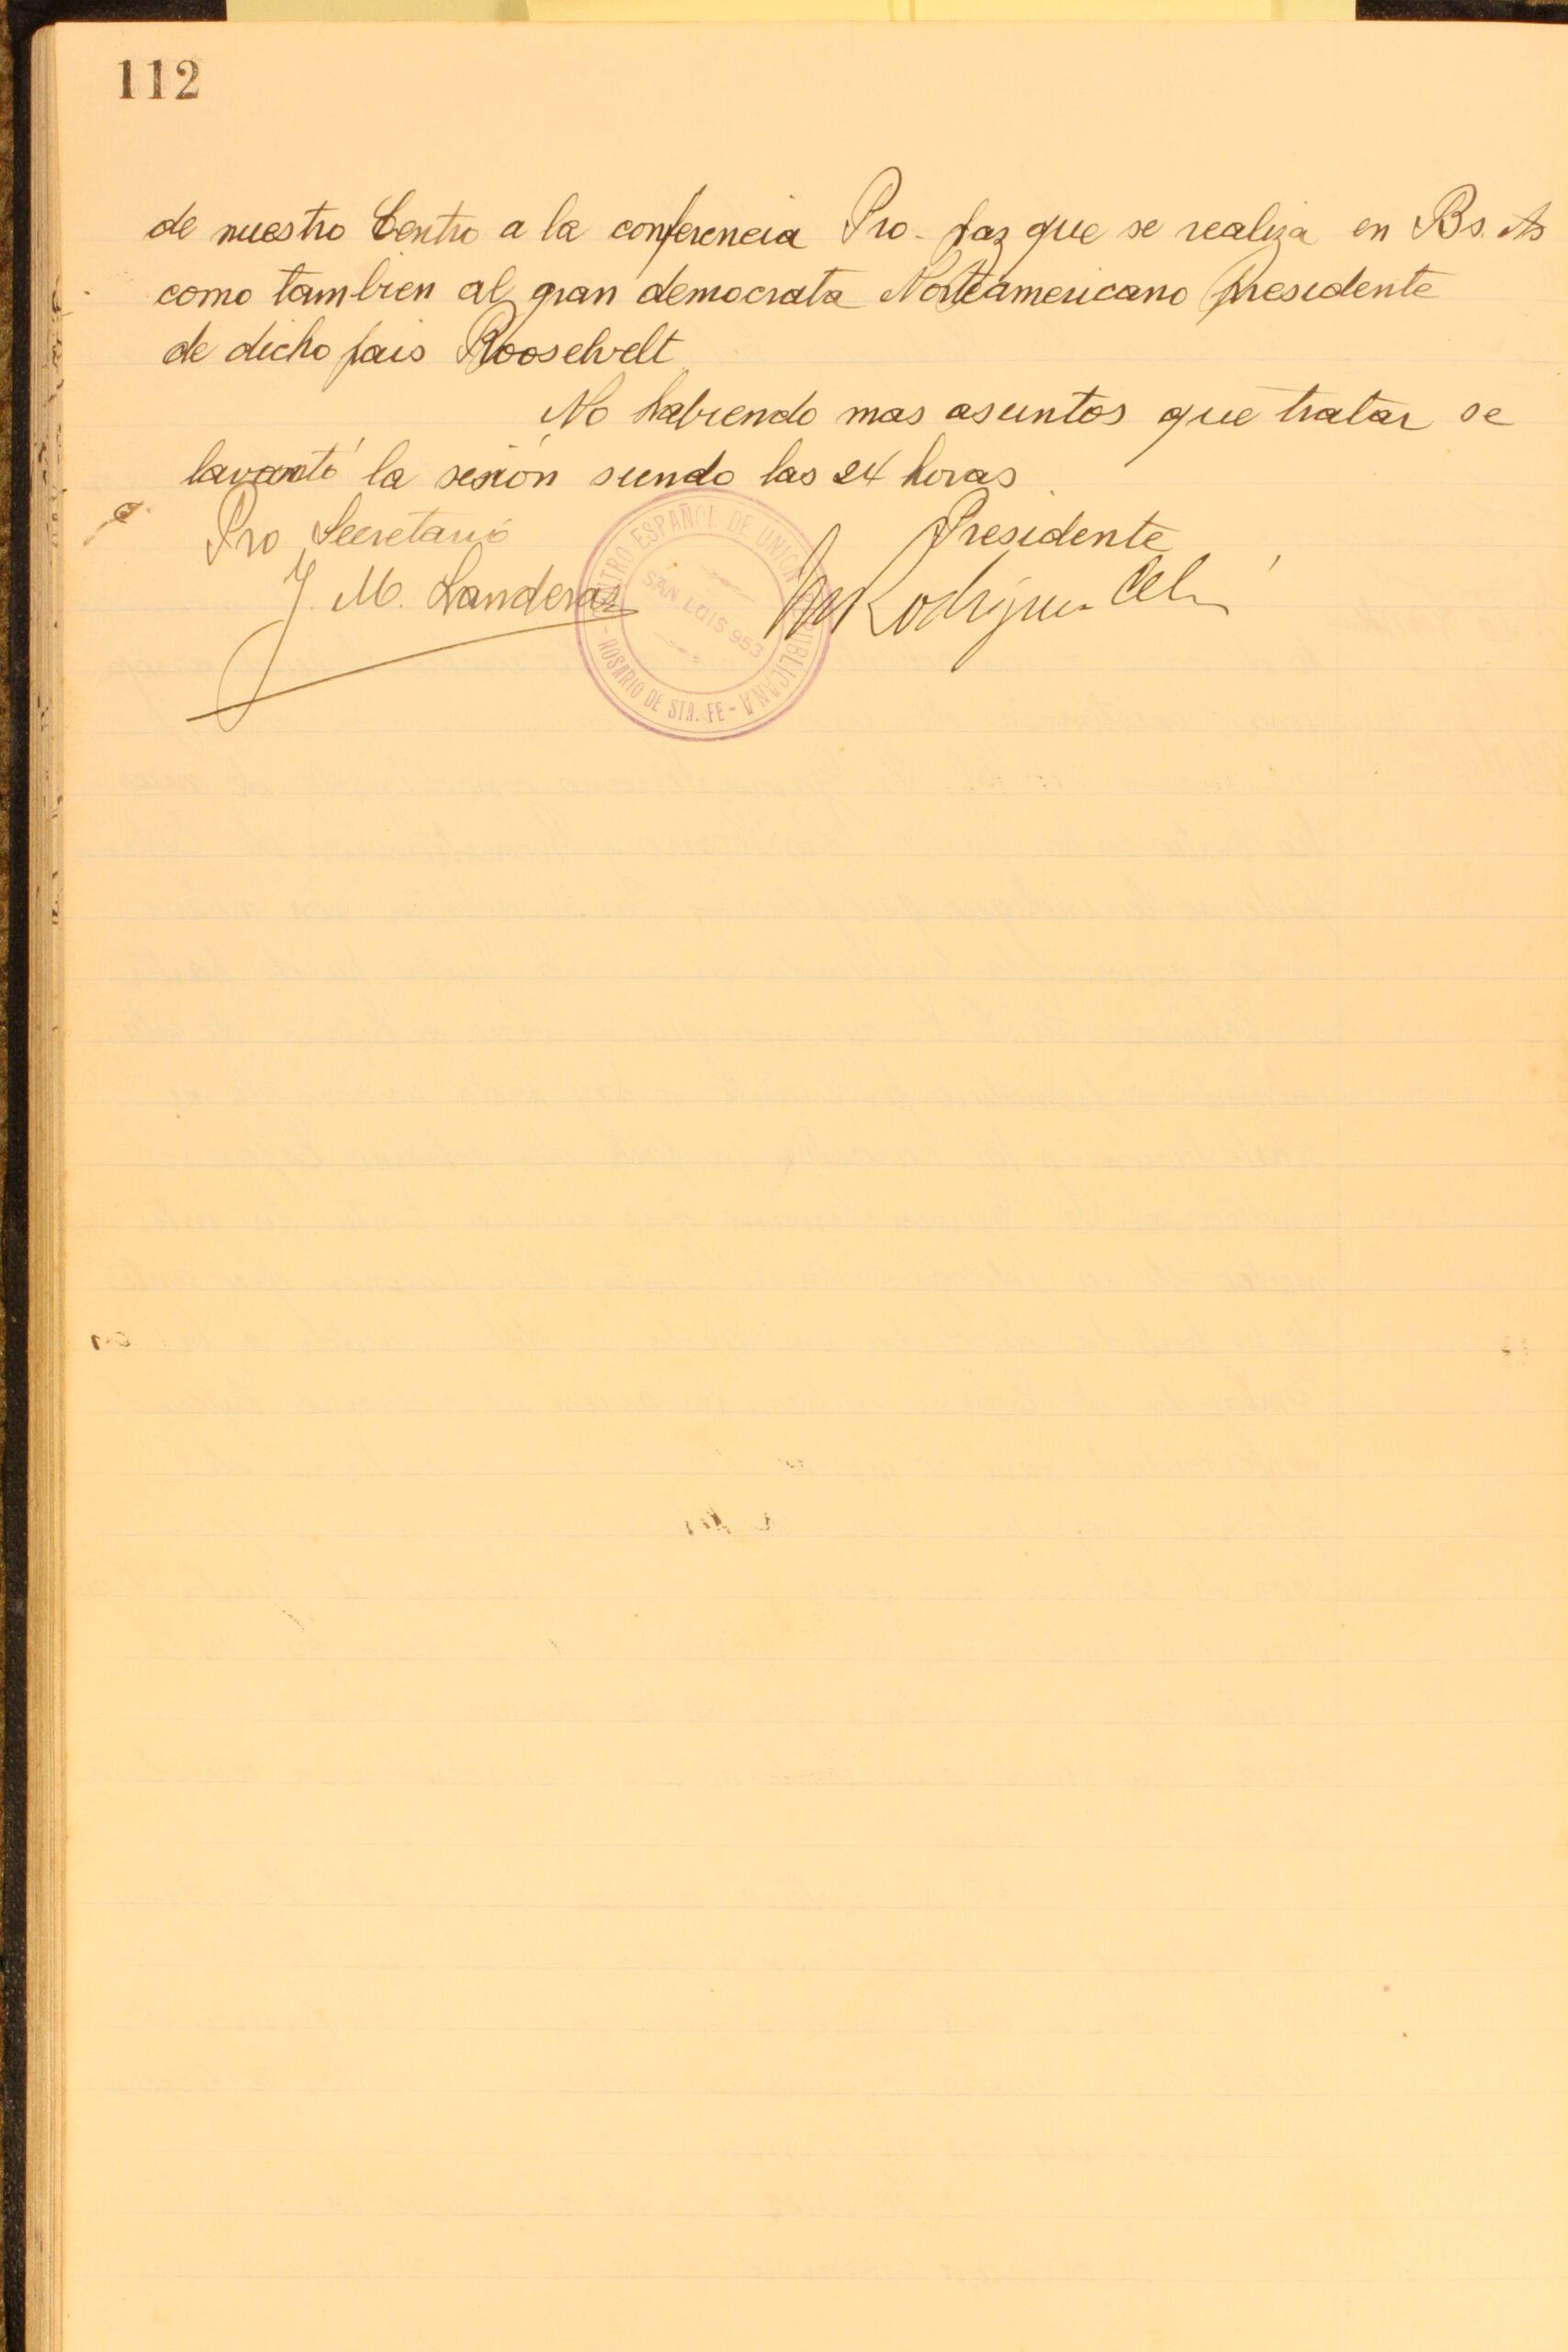 112
de nuestro Centro a la conferencia Pro-paz que se realiza en Bs. As
como tambien al gran democrata Norteamericano presidente
de dicho pais Rooselvelt
No habiendo mas asuntos que tratar se
lavantó la sesión siendo las 24 horas
Pro Secretario
Presidente
J. M. Landeras
M Rodriguez
CENTRO ESPAÑOL DE UNION REPUBLICANA
SAN LUIS 953
- ROSARIO DE STA. FE -